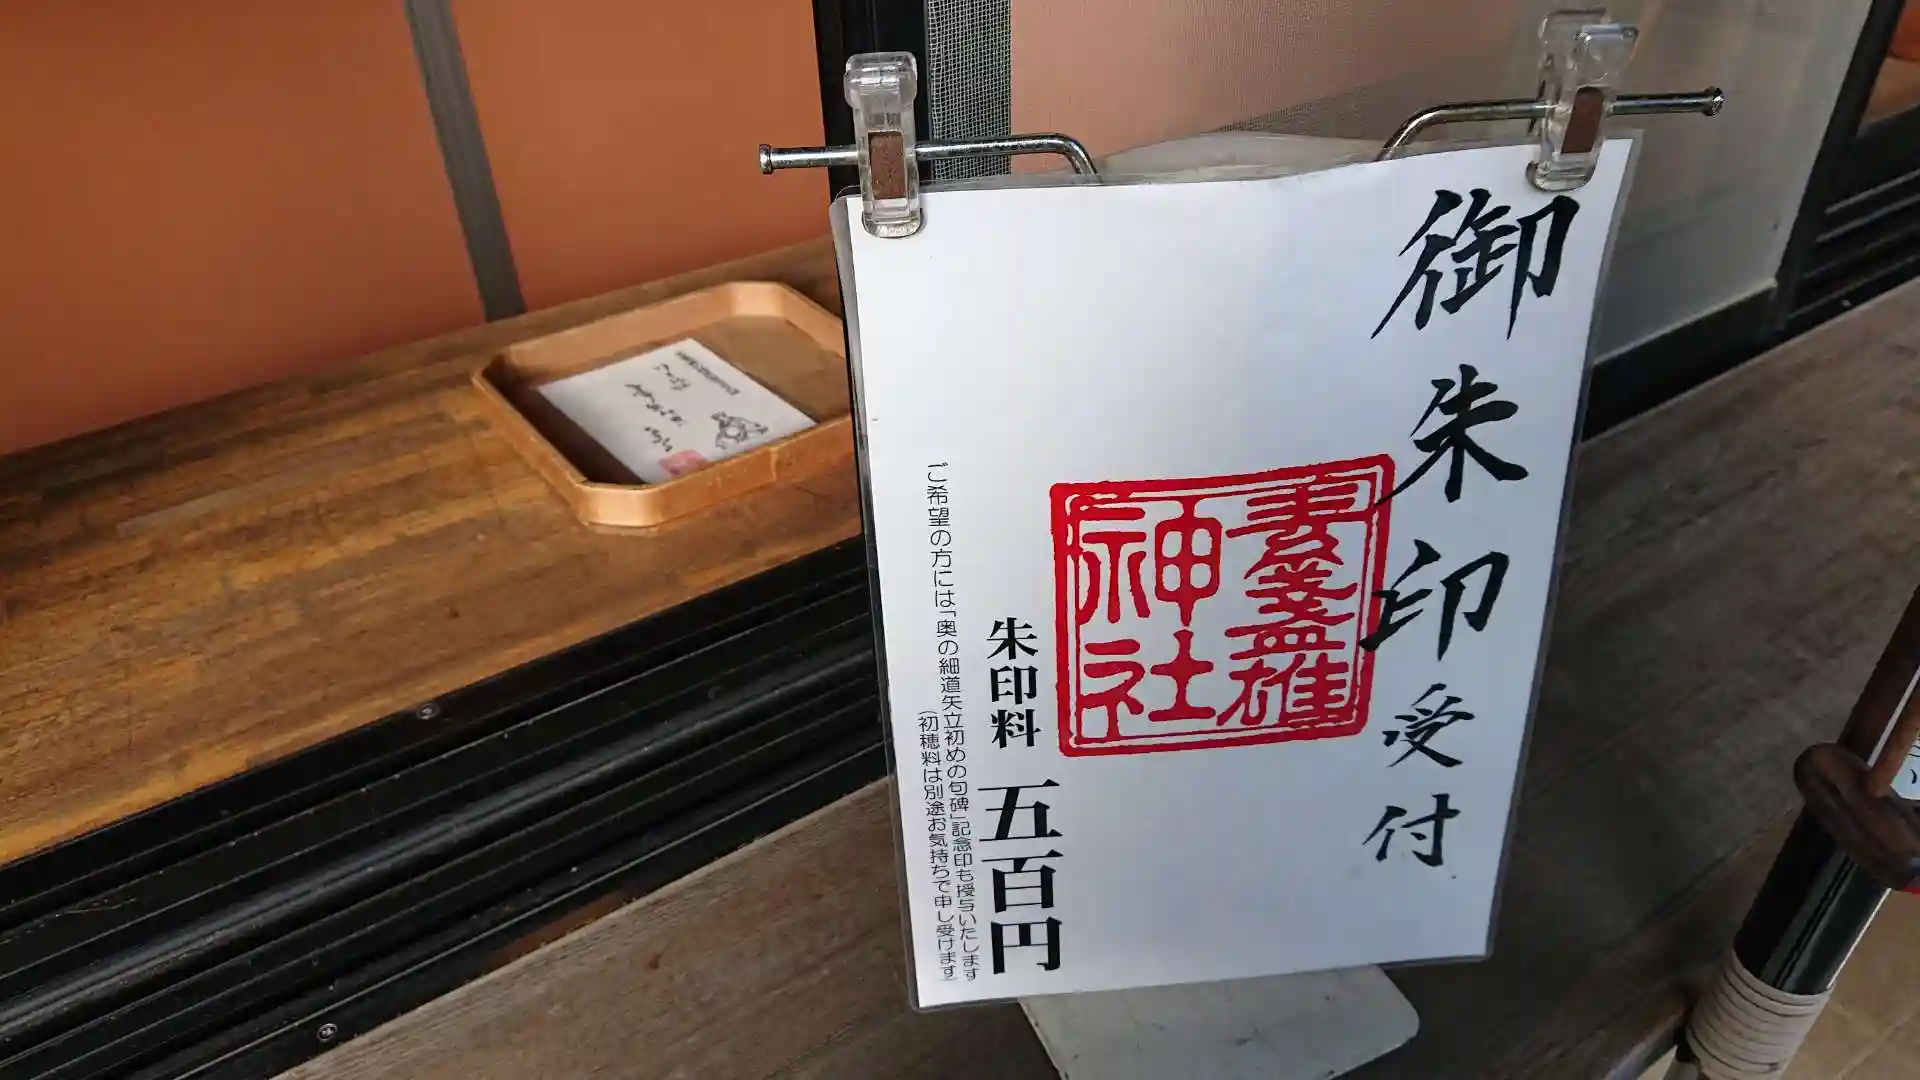 御朱印受付
素盞雄
神社
朱印料 五百円
ご希望の方には「奥の細道矢立初めの句碑」記念印も授与いたします
(初穂料は別途お気持ちで申し受けます)